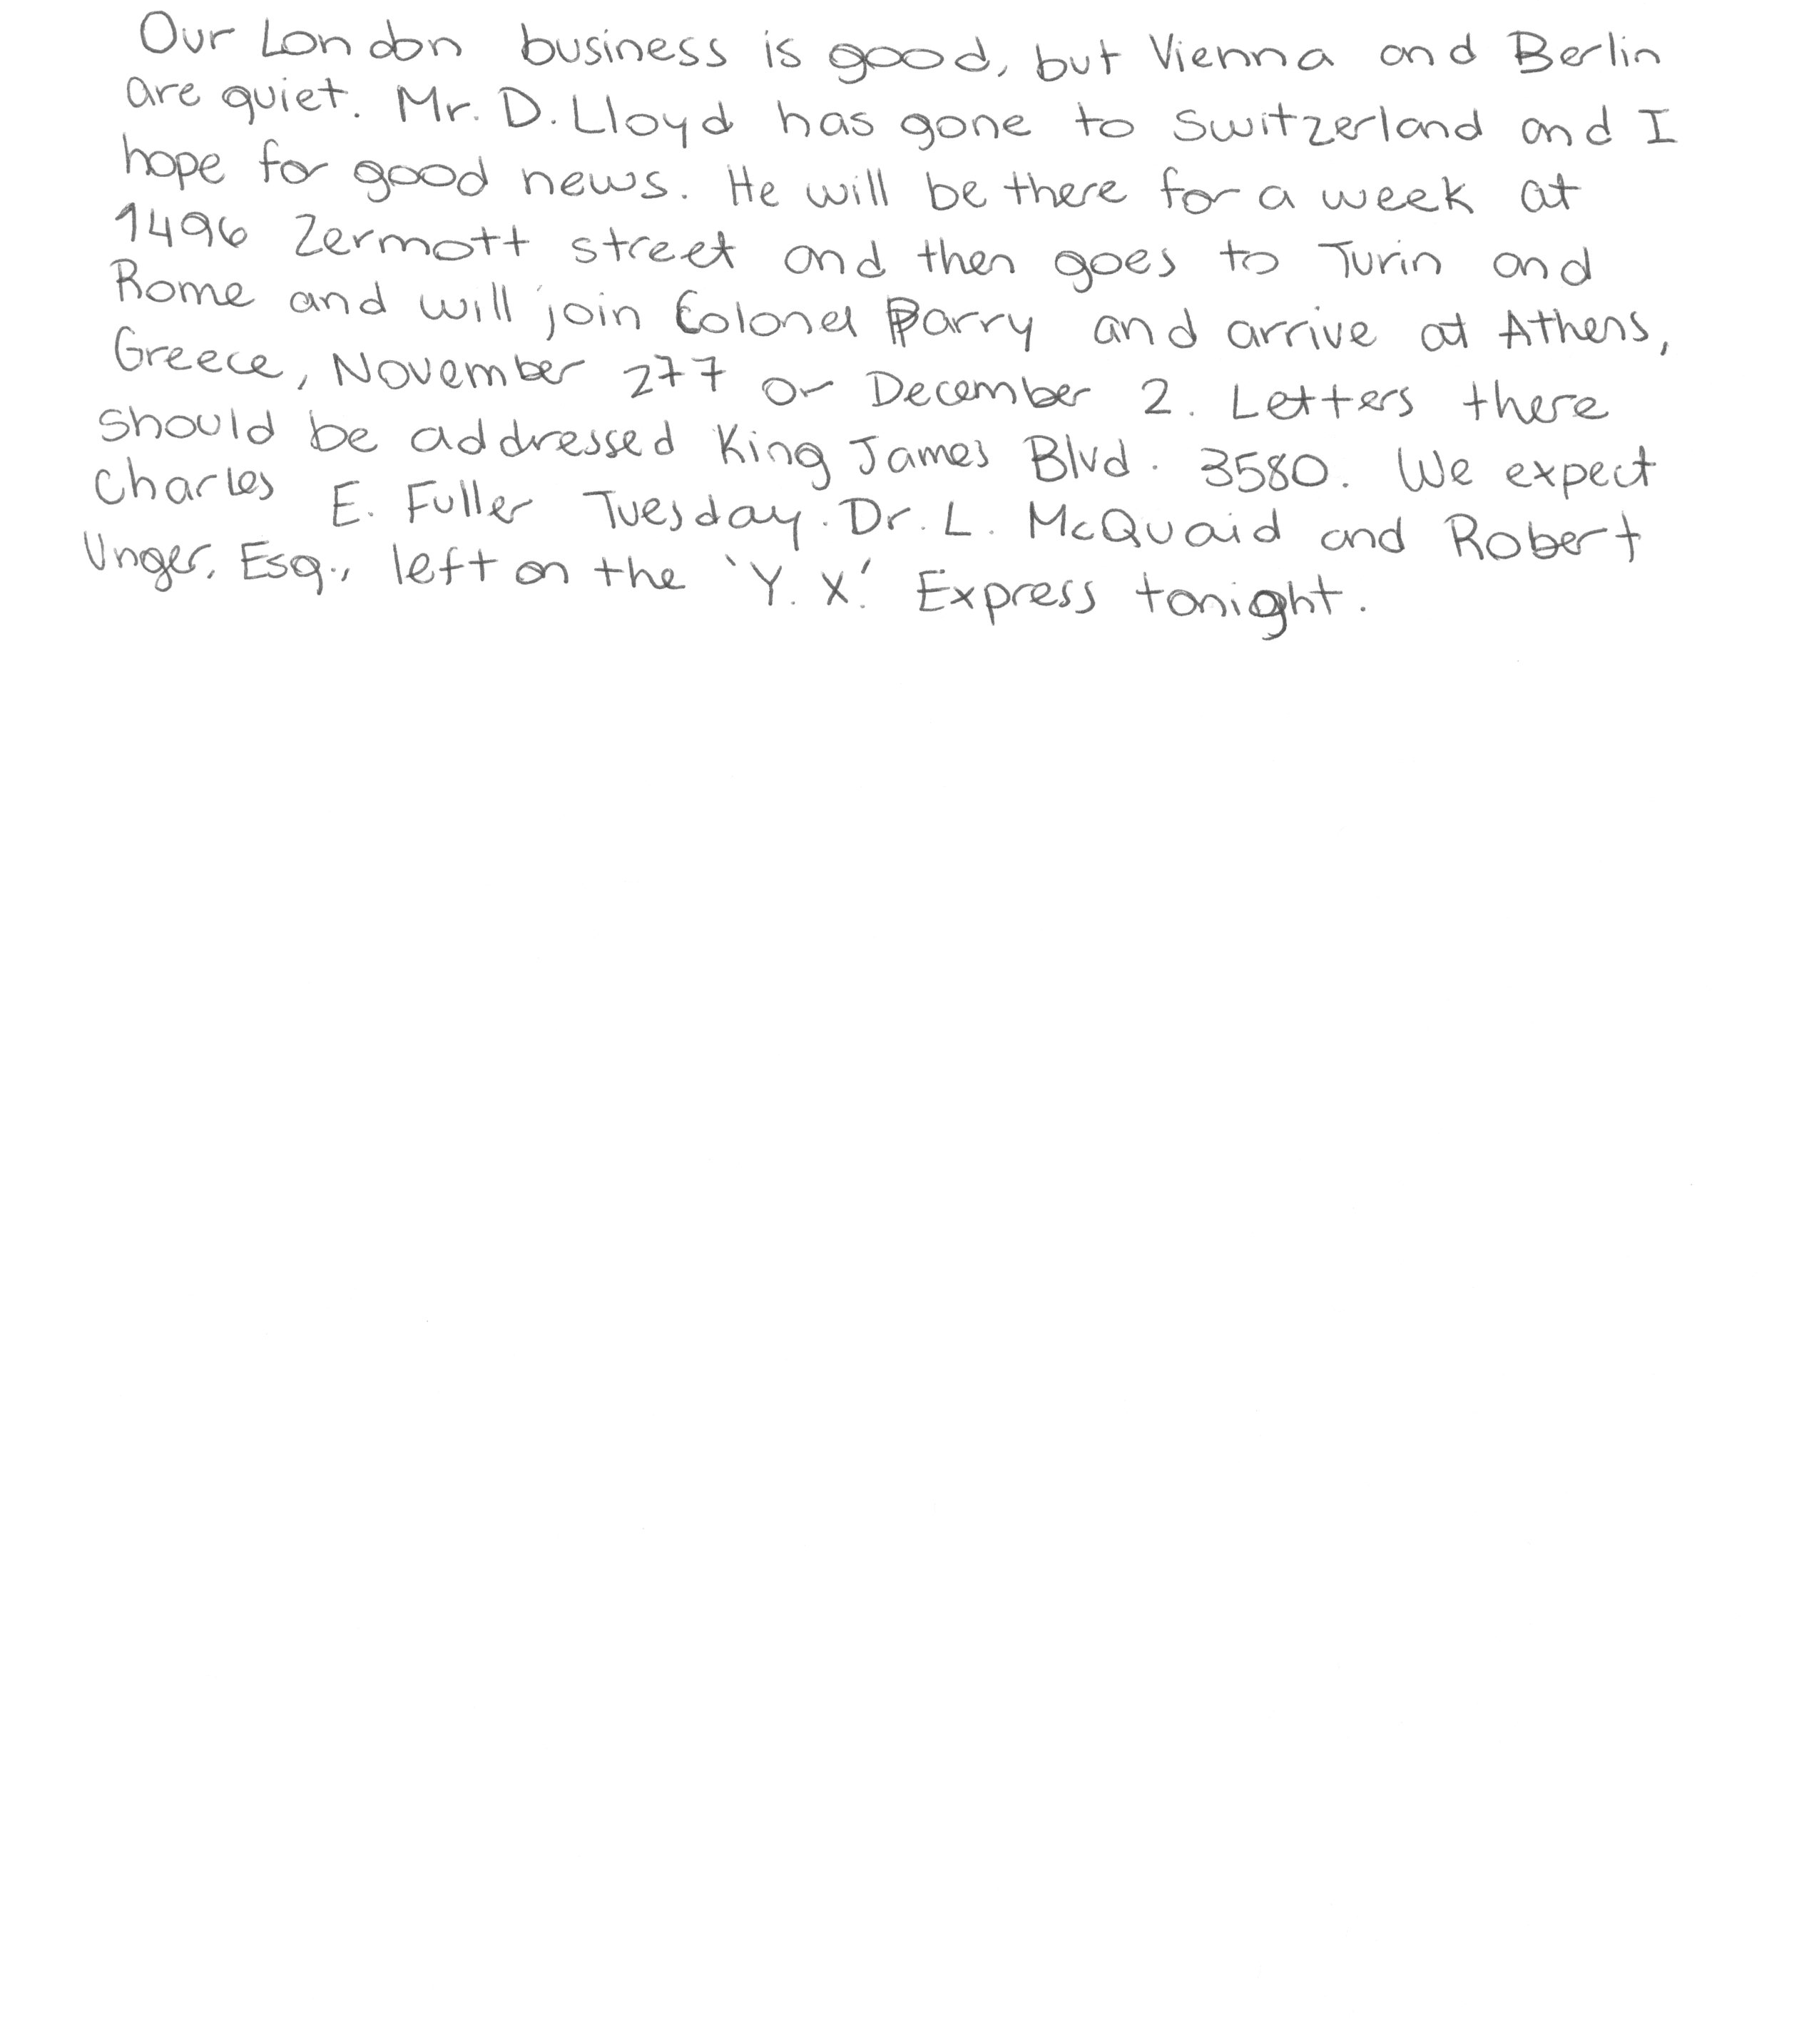 Our London business is good, but Vienna and Berlin
are quiet. Mr. D. Lloyd has gone to Switzerland and I
hope for good news. He will be there for a week at
1496 Zermott street and then goes to Turin and
Rome and will join Colonel Parry and arrive at Athens,
Greece, November 277 or December 2. Letters there
should be addressed King James Blvd. 3580. We expect
Charles E. Fuller Tuesday. Dr. L. McQuaid and Robert
Unger, Esq., left on the 'Y.X.' Express tonight.